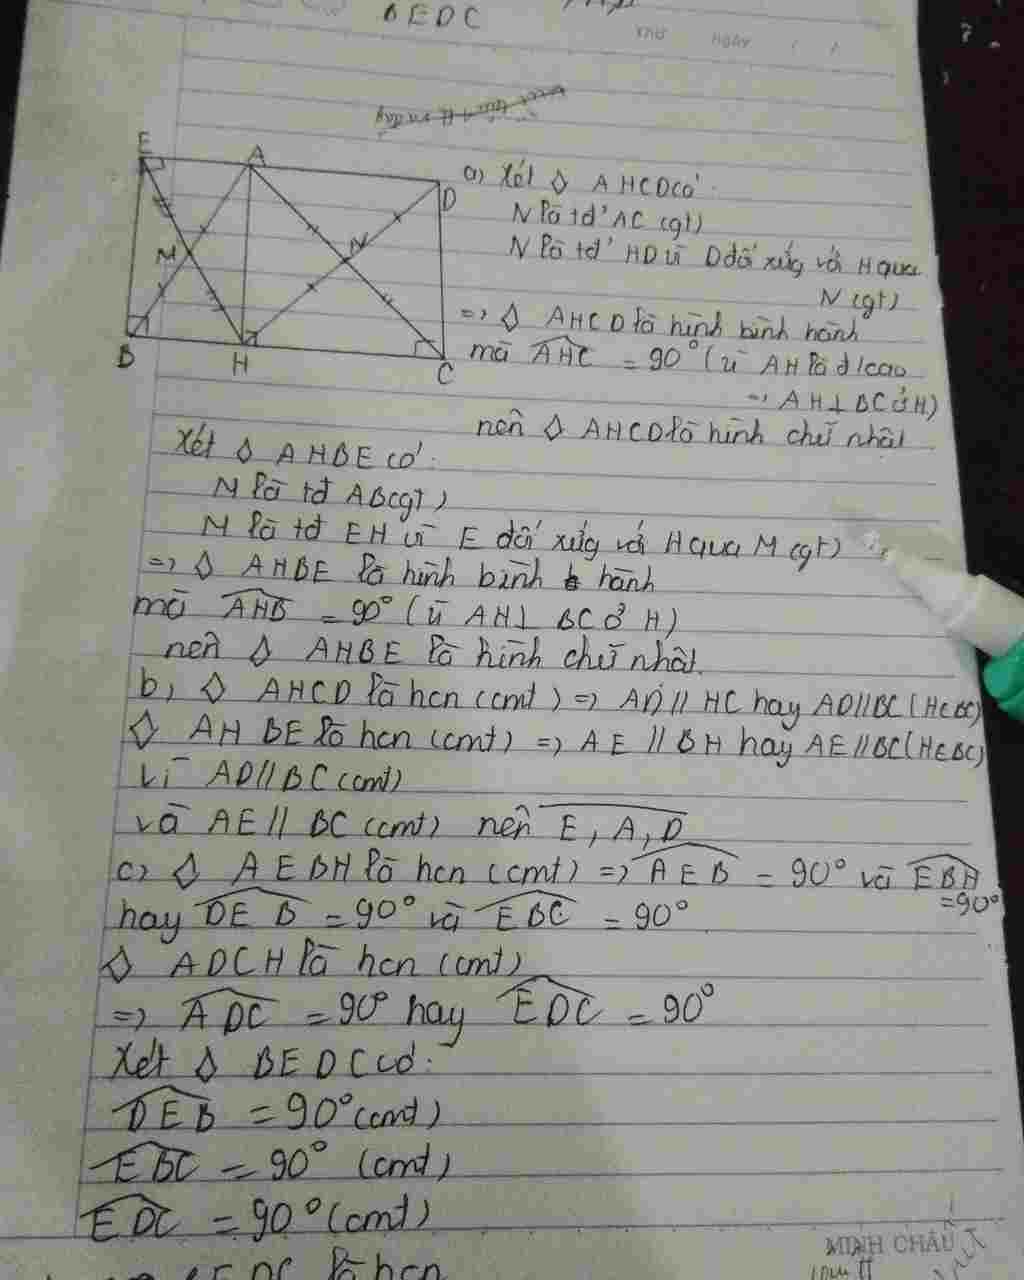 BEDC
THỨ NGÀY / /
E A D
M N
B H C
a) Xét ◇ AHCD có:
N là tđ' AC (gt)
N là tđ' HD vì D đối xứng với H qua
N (gt)
=> ◇ AHCD là hình bình hành
mà AHC = 90° (vì AH là đ/cao
=> AH⊥BC ở H)
nên ◇ AHCD là hình chữ nhật
Xét ◇ AHBE có:
M là tđ AB(gt)
M là tđ EH vì E đối xứng với H qua M (gt)
=> ◇ AHBE là hình bình hành
mà AHB = 90° (vì AH⊥ BC ở H)
nên ◇ AHBE là hình chữ nhật.
b, ◇ AHCD là hcn (cmt) => AD // HC hay AD//BC (H∈BC)
◇ AHBE là hcn (cmt) => AE // BH hay AE//BC(H∈BC)
Vì AD//BC (cmt)
và AE// BC (cmt) nên E, A, D
c) ◇ AEBH là hcn (cmt) => AEB = 90° và EBH
=90°
hay DEB = 90° và EBC = 90°
◇ ADCH là hcn (cmt)
=> ADC = 90° hay EDC = 90°
Xét ◇ BEDC có:
DEB = 90° (cmt)
EBC = 90° (cmt)
EDC = 90° (cmt)
MINH CHÂU
EDC là hcn